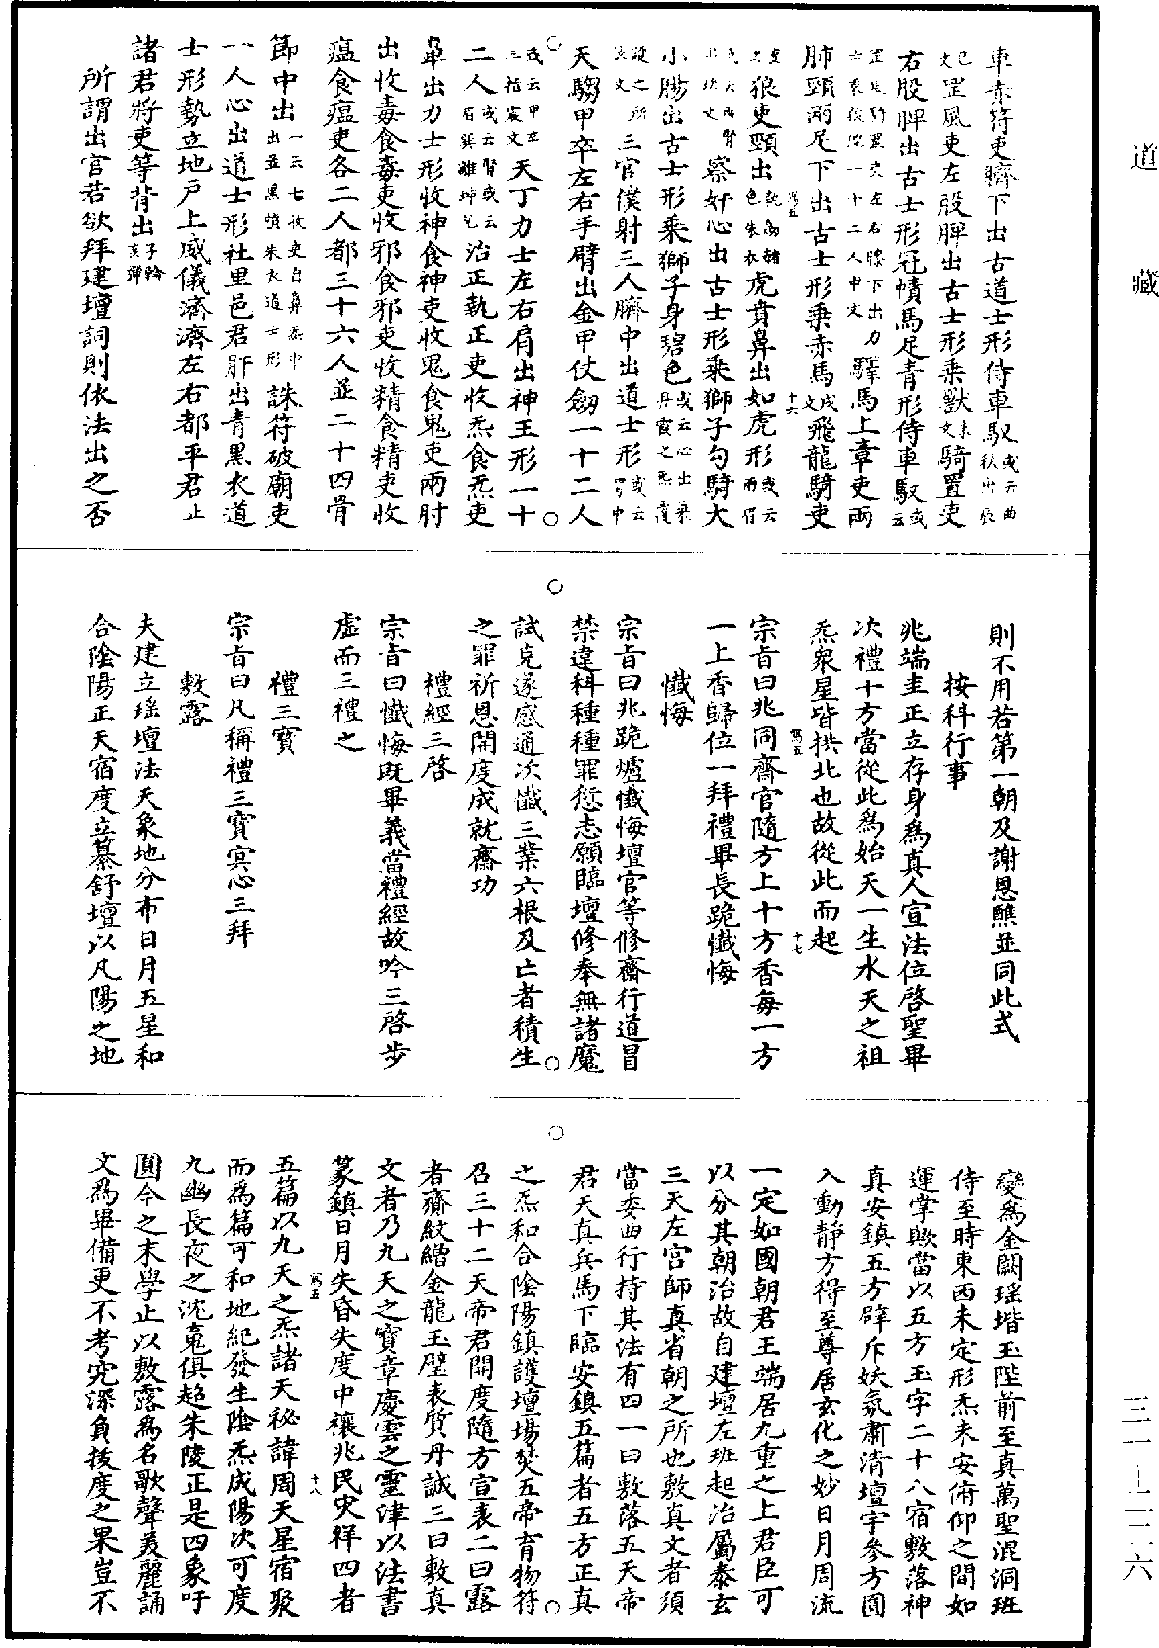 道藏
三一—七二六
車赤符吏臍下出古道士形侍車馭或云曲
文罡風吏左股脾出古士形乘獸文騎置吏
右股脾出古士形冠幘馬足青形侍車馭
驛馬上章吏兩
肺頸兩足下出古士形乘赤馬文飛龍騎吏
狼吏頸出虎賁鼻出如虎形
察奸心出古士形乘獅子勾騎大
小腸出古士形乘獅子身碧色
三官僕射三人臍中出道士形
天騶甲卒左右手臂出金甲仗劒一十二人
天丁力士左右肩出神王形一十
二人治正執正吏收炁食炁吏
鼻出力士形收神食神吏收鬼食鬼吏兩肘
出收毒食毒吏收邪食邪吏收精食精吏收
瘟食瘟吏各二人都三十六人並二十四骨
節中出誅符破廟吏
一人心出道士形社里邑君肝出青黑衣道
士形勢立地戶上威儀濟濟左右都平君止
諸君將吏等背出
所謂出官若欲拜建壇詞則依法出之否
則不用若第一朝及謝恩醮並同此式
按科行事
兆端圭正立存身爲真人宣法位啓聖畢
次禮十方當從此爲始天一生水天之祖
炁衆星皆拱北也故從此而起
宗旨曰兆同齋官隨方上十方香每一方
一上香歸位一拜禮畢長跪懺悔
懺悔
宗旨曰兆跪爐懺悔壇官等修齋行道冒
禁違科種種罪愆志願臨壇修奉無諸魔
試克遂感通次懺三業六根及亡者積生
之罪祈恩開度成就齋功
禮經三啓
宗旨曰懺悔既畢義當禮經故吟三啓步
虛而三禮之
禮三寶
宗旨曰凡稱禮三寶冥心三拜
敷露
夫建立瑤壇法天象地分布日月五星和
合陰陽正天宿度立纂舒壇以凡陽之地
變爲金闕瑤堦玉陛前至真萬聖混洞班
侍至時東西未定形炁未安俯仰之間如
運掌歟當以五方玉字二十八宿敷落神
真安鎮五方辟斥妖氛肅清壇宇參方圓
入動靜方得至尊居玄化之妙日月周流
一定如國朝君王端居九重之上君臣可
以分其朝治故自建壇左班起治屬泰玄
三天左宮師真省朝之所也敷真文者須
當委曲行持其法有四一曰敷落五天帝
君天真兵馬下臨安鎮五篇者五方正真
之炁和合陰陽鎮護壇場焚五帝育物符
召三十二天帝君開度隨方宣表二曰露
者齎紋繒金龍玉璧表質丹誠三曰敷真
文者乃九天之寶章慶雲之靈津以法書
篆鎮日月失昏失度中禳兆民灾祥四者
五篇以九天之炁諸天秘諱周天星宿聚
而爲篇可和地紀發生陰炁成陽次可度
九幽長夜之沈魂俱超朱陵正是四象吁
圓今之末學止以敷露爲名歌聲美麗誦
文爲畢備更不考究深負拔度之果豈不